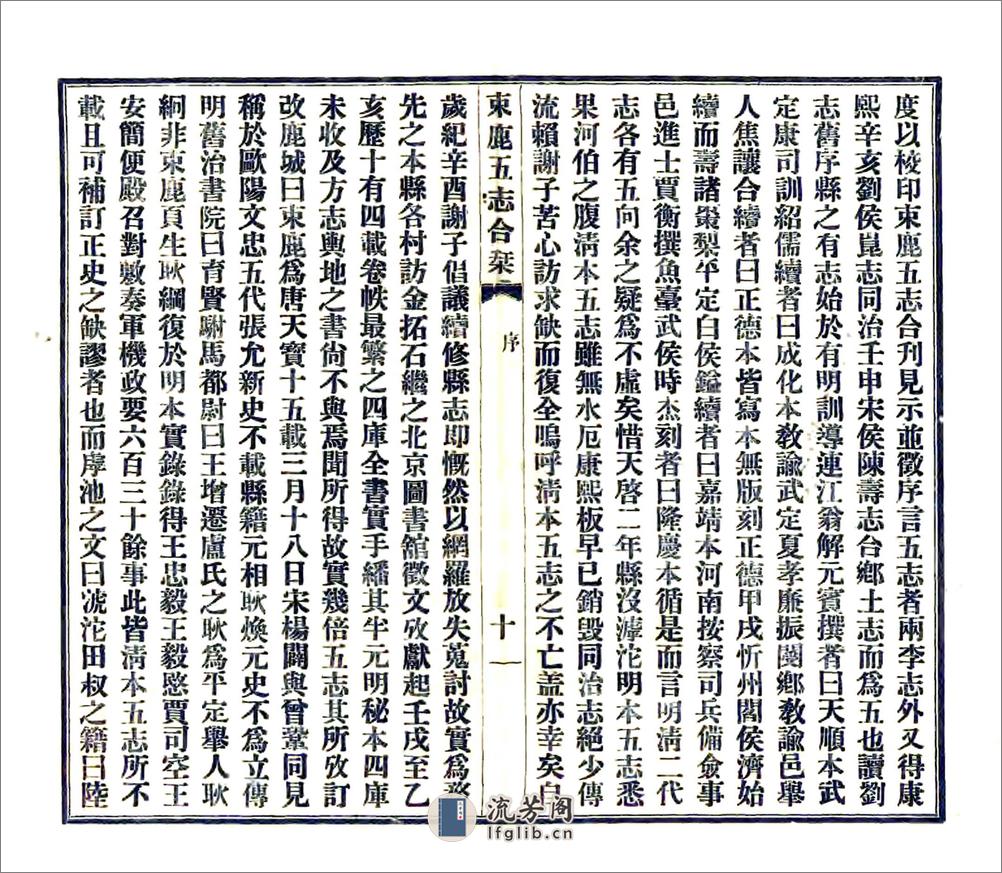 度以梭印束鹿五志合刊見示並徵序言五志者兩李志外又得康
熙辛亥劉侯崑志同治壬申宋侯陳壽志台鄉土志而爲五也讀劉
志舊序縣之有志始於有明訓導連江翁解元賓撰者曰天順本武
定康司訓紹儒續者曰成化本敎諭武定夏孝廉振闉鄉敎諭邑舉
人焦讓合續者曰正德本皆寫本無版刻正德甲戌忻州閻侯濟始
續而壽諸棗梨午定白侯鎰續者曰嘉靖本河南按察司兵備僉事
邑進士賈衡撰魚臺武侯時杰刻者曰隆慶本循是而言明淸二代
志各有五向余之疑爲不虛矣惜天啓二年縣沒滹沱明本五志悉
果河伯之腹淸本五志雖無水厄康熙板早已銷毀同治志絕少傳
流賴謝子苦心訪求缺而復全嗚呼淸本五志之不亡盖亦幸矣白
束鹿五志合栞
序
十一
歲紀辛酉謝子倡議續修縣志即慨然以網羅放失蒐討故實爲務
先之本縣各村訪金拓石繼之北京圖書舘徵文攷獻起壬戌至乙
亥歷十有四載卷帙最繁之四庫全書實手繙其半元明秘本四庫
未收及方志輿地之書尙不與焉聞所得故實幾倍五志其所攷訂
改鹿城曰束鹿爲唐天寶十五載三月十八日宋楊闢與曾鞏同見
稱於歐陽文忠五代張允新史不載縣籍元相耿煥元史不爲立傳
明舊治書院曰育賢駙馬都尉曰王增遷盧氏之耿爲平定舉人耿
絅非束鹿貢生耿綱復於明本實錄錄得王忠毅王毅愍賈司空王
安簡便殿召對敷奏軍機政要六百三十餘事此皆淸本五志所不
載且可補訂正史之缺謬者也而虖池之文曰淲沱田叔之籍曰陸
流芳阁
lfglib.cn